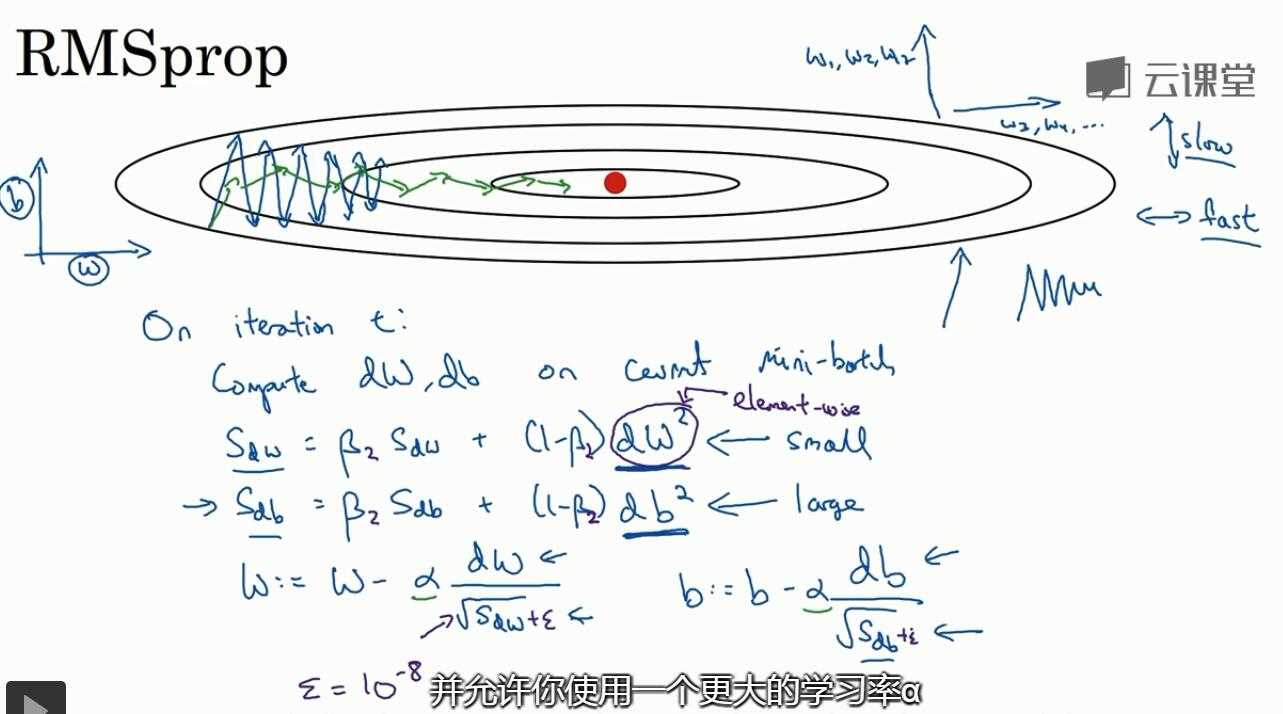 RMSprop
W₁, W₂, W₂
云课堂
W₃, W₄, ...
slow
fast
b
w
On iteration t:
Compute dW, db on current mini-batch
element-wise
S_dw = β₂ S_dw + (1-β₂) dW² ← small
→ S_db = β₂ S_db + (1-β₂) db² ← large
W := W - α dW / √S_dw + ε ← b := b - α db / √S_db + ε ←
ε = 10⁻⁸
并允许你使用一个更大的学习率α